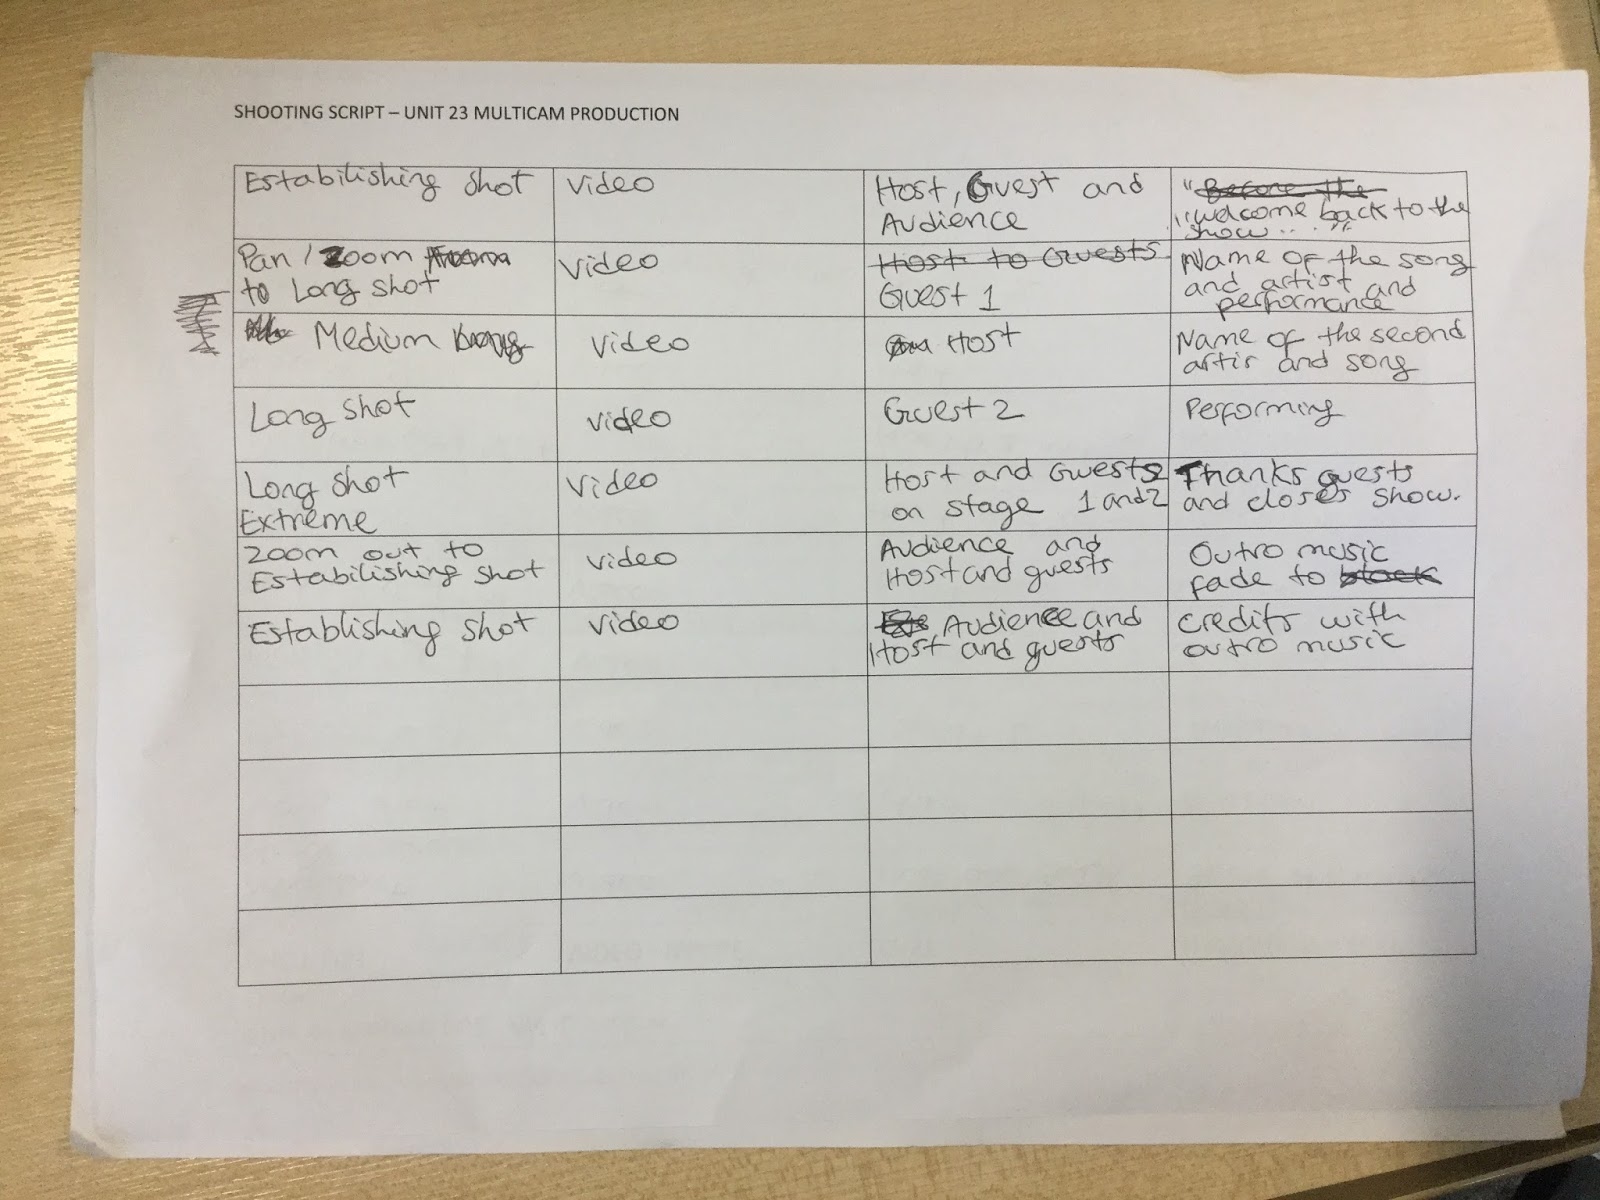 SHOOTING SCRIPT – UNIT 23 MULTICAM PRODUCTION
Estabilishing shot
video
Host, Guest and
Audience
"Before the
"welcome back to the
show...."
Pan / Zoom
to Long shot
video
Host to Guests
Guest 1
Name of the song
and artist and
performance
Medium
video
Host
Name of the second
artis and song
Long shot
video
Guest 2
Performing
Long shot
Extreme
video
Host and Guests
on stage 1 and 2
Thanks guests
and closes show.
Zoom out to
Estabilishing shot
video
Audience and
Host and guests
Outro music
fade to black
Establishing shot
video
Audience and
Host and guests
credits with
outro music